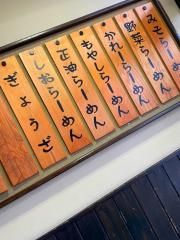 みそらーめん
野菜らーめん
かれーらーめん
もやしらーめん
正油らーめん
しおらーめん
ぎょうざ